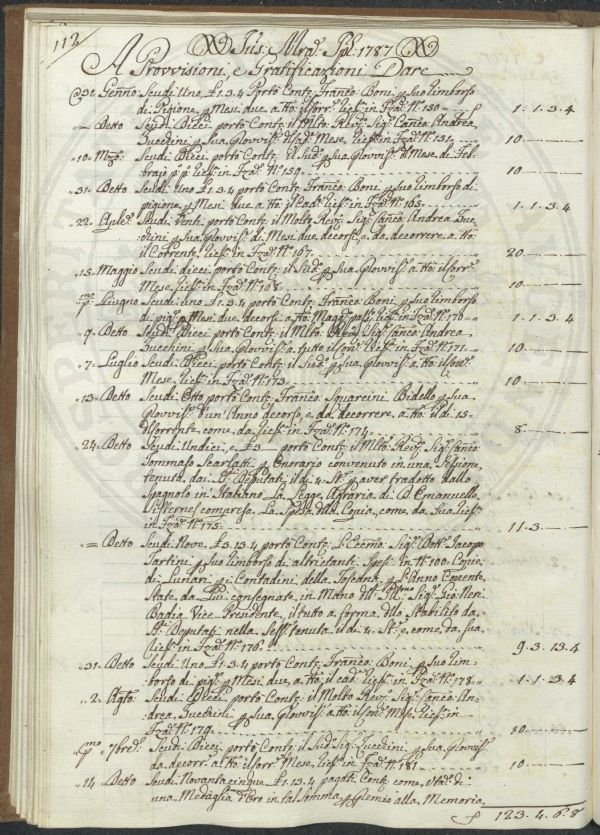 112
Jus: Mrd: Jpl: 1787
A Provvisioni, e Gratificazioni Dare
31. Genno Scudi Uno, £ 1. 3. 4 Portò Contj: Franco: Boni, p suo rimborso
di Pigione, p Mesi due, a tto il sorr: Ricf: in Fza: N: 150 1. 1. 3. 4
= Detto Scudi Dieci portò Contj: il Mlto: Revd: Sigr: Canco: Andrea
Zucchini, p sua Provvis: Mese, Ricf: in Fza: N: 154 10
10. Mzo: Scudi Dieci portò Contj: il Sud: p sua Provvis: d Mese di Feb-
brajo p p: Ricf: in Fza: N: 159 10
31. Detto Scudi Uno £ 1. 3. 4 portò Contj: Franco: Boni, p suo rimborso di
pigione, p Mesi due a tto il Cad: Ricf: in Fza: N: 165 1. 1. 3. 4
22. Aple: Scudi Venti, portò Contj: il Molto Revd: Sigr: Canco: Andrea Zuc-
chini, p sua Provvis: di Mesi due, decorsi, e da decorrere, a tto
il Corrente, Ricf: in Fza: N: 167 20
15. Maggio Scudi dieci portò Contj: il Sud: p sua Provvis: a tto il sorr:
Mese, Ricf: in Fza: N: 168 10
pmo: Giugno Scudi uno £ 1. 3. 4 portò Contj: Franco: Boni, p suo rimborso
di pige: p Mesi due, decorsi a tto Magg: pas: Ricf: in Fza: N: 170 1. 1. 3. 4
9. Detto Scudi Dieci portò Contj: il Mlto: Revd: Sigr: Canco: Andrea
Zucchini p sua Provvis: a tutto il sorr: Ricf: in Fza: N: 171 10
7. Luglio Scudi Dieci, portò Contj: il Sud: p sua Provvis: a tto il sorr:
Mese, Ricf: in Fza: N: 173 10
13. Detto Scudi Otto portò Contj: Franco: Squarcini Bidello p sua
Provvis: d'un Anno decorso, e da decorrere, a tto il di 15
Corrente, come da Ricf: in Fza: N: 174 8
24. Detto Scudi Undici, e £ 3 portò Contj: il Mlto: Revd: Sigr: Canco:
Tommaso Scarlatti, p Onorario convenuto in una Sessione,
tenuta, dai SSri: Deputati il di 4. St: p aver tradotto dallo
Spagnolo in Italiano La Legge Agraria di D. Emanuello
Sisternes compresa La Spesa dlla Copia, come da sua Ricf:
in Fza: N: 175 11. 3
= Detto Scudi Nove, £ 3. 13. 4 portò Contj: L'Eccmo: Sigr: Dott: Jacopo
Tartini p suo rimborso di altrettanti spesi in N: 100 Copie
di Lunari p i Contadini della Toscana, p L'Anno Corrente,
State da Lui consegnate in Mano dll' Illmo: Sigr: Gio: Neri
Badia Vice Presidente, il tutto a forma dllo Stabilito da
SSri: Deputati nella Sess: tenuta il di 4. St: e, come, da sua
Ricf: in Fza: N: 176 9. 3. 13. 4
31. Detto Scudi Uno £ 1. 3. 4 portò Contj: Franco: Boni, p suo rim-
borso di pige: p Mesi due, a tto il cad: Ricf: in Fza: N: 178 1. 1. 3. 4
2. Agto: Scudi Dieci portò Contj: il Molto Revd: Sigr: Canco: An-
drea Zucchini p sua Provvis: a tto il sorr: Mese, Ricf: in
Fza: N: 179 10
pmo 7bre: Scudi Dieci, portò Contj: il Sud: Sigr: Zucchini, p sua Provvis:
da decorr: a tto il sorr: Mese, Ricf: in Fza: N: 181 10
24. Detto Scudi Novantacinque, £ 1. 13. 4 pagati Contj: come, Vta: di
una Medaglia d'Oro in tal somma p Premio alla Memoria
123. 4. 6. 8